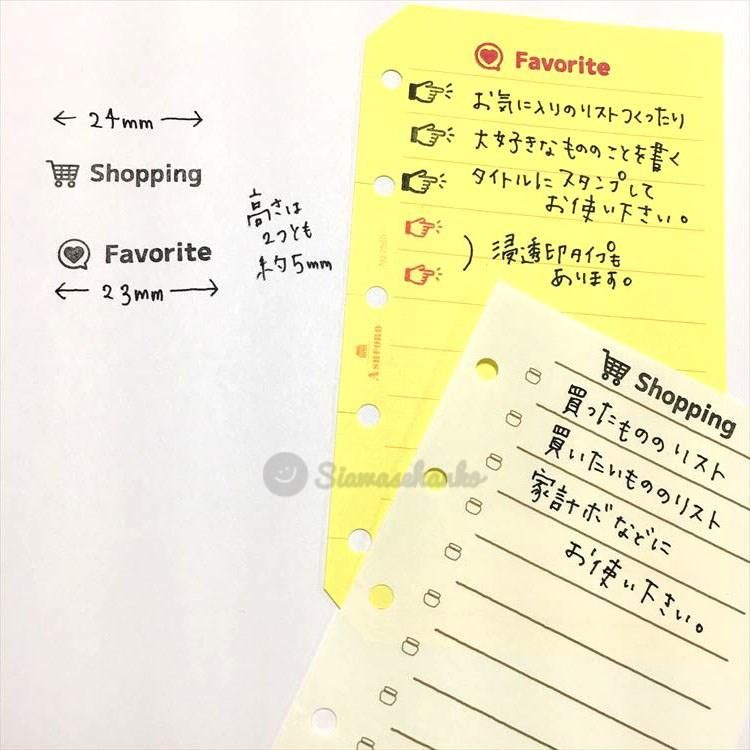 ← 24mm →
Shopping
Favorite
← 23mm →
高さは
2つとも
約5mm
Favorite
お気に入りのリストつくったり
大好きなもののことを書く
タイトルにスタンプして
お使い下さい。
) 浸透印タイプも
あります。
ASHFORD
Shopping
買ったもののリスト
買いたいもののリスト
家計ボなどに
お使い下さい。
Siawasehanko